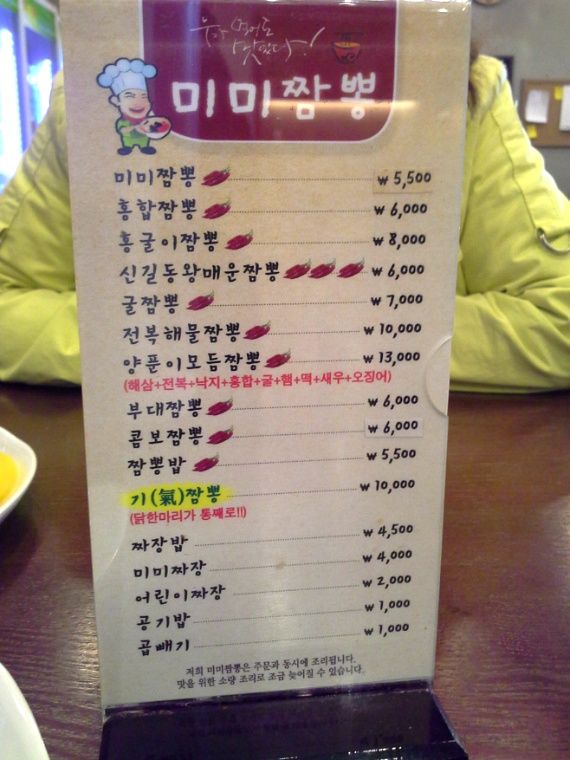 우아 먹어도 맛있다!
미미짬뽕
미미짬뽕 ₩ 5,500
홍합짬뽕 ₩ 6,000
홍굴이짬뽕 ₩ 8,000
신길동왕매운짬뽕 ₩ 6,000
굴짬뽕 ₩ 7,000
전복해물짬뽕 ₩ 10,000
양푼이모듬짬뽕 ₩ 13,000
(해삼+전복+낙지+홍합+굴+햄+떡+새우+오징어)
부대짬뽕 ₩ 6,000
콤보짬뽕 ₩ 6,000
짬뽕밥 ₩ 5,500
기(氣)짬뽕 ₩ 10,000
(닭한마리가 통째로!!)
짜장밥 ₩ 4,500
미미짜장 ₩ 4,000
어린이짜장 ₩ 2,000
공기밥 ₩ 1,000
곱빼기 ₩ 1,000
저희 미미짬뽕은 주문과 동시에 조리됩니다.
맛을 위한 소량 조리로 조금 늦어질 수 있습니다.